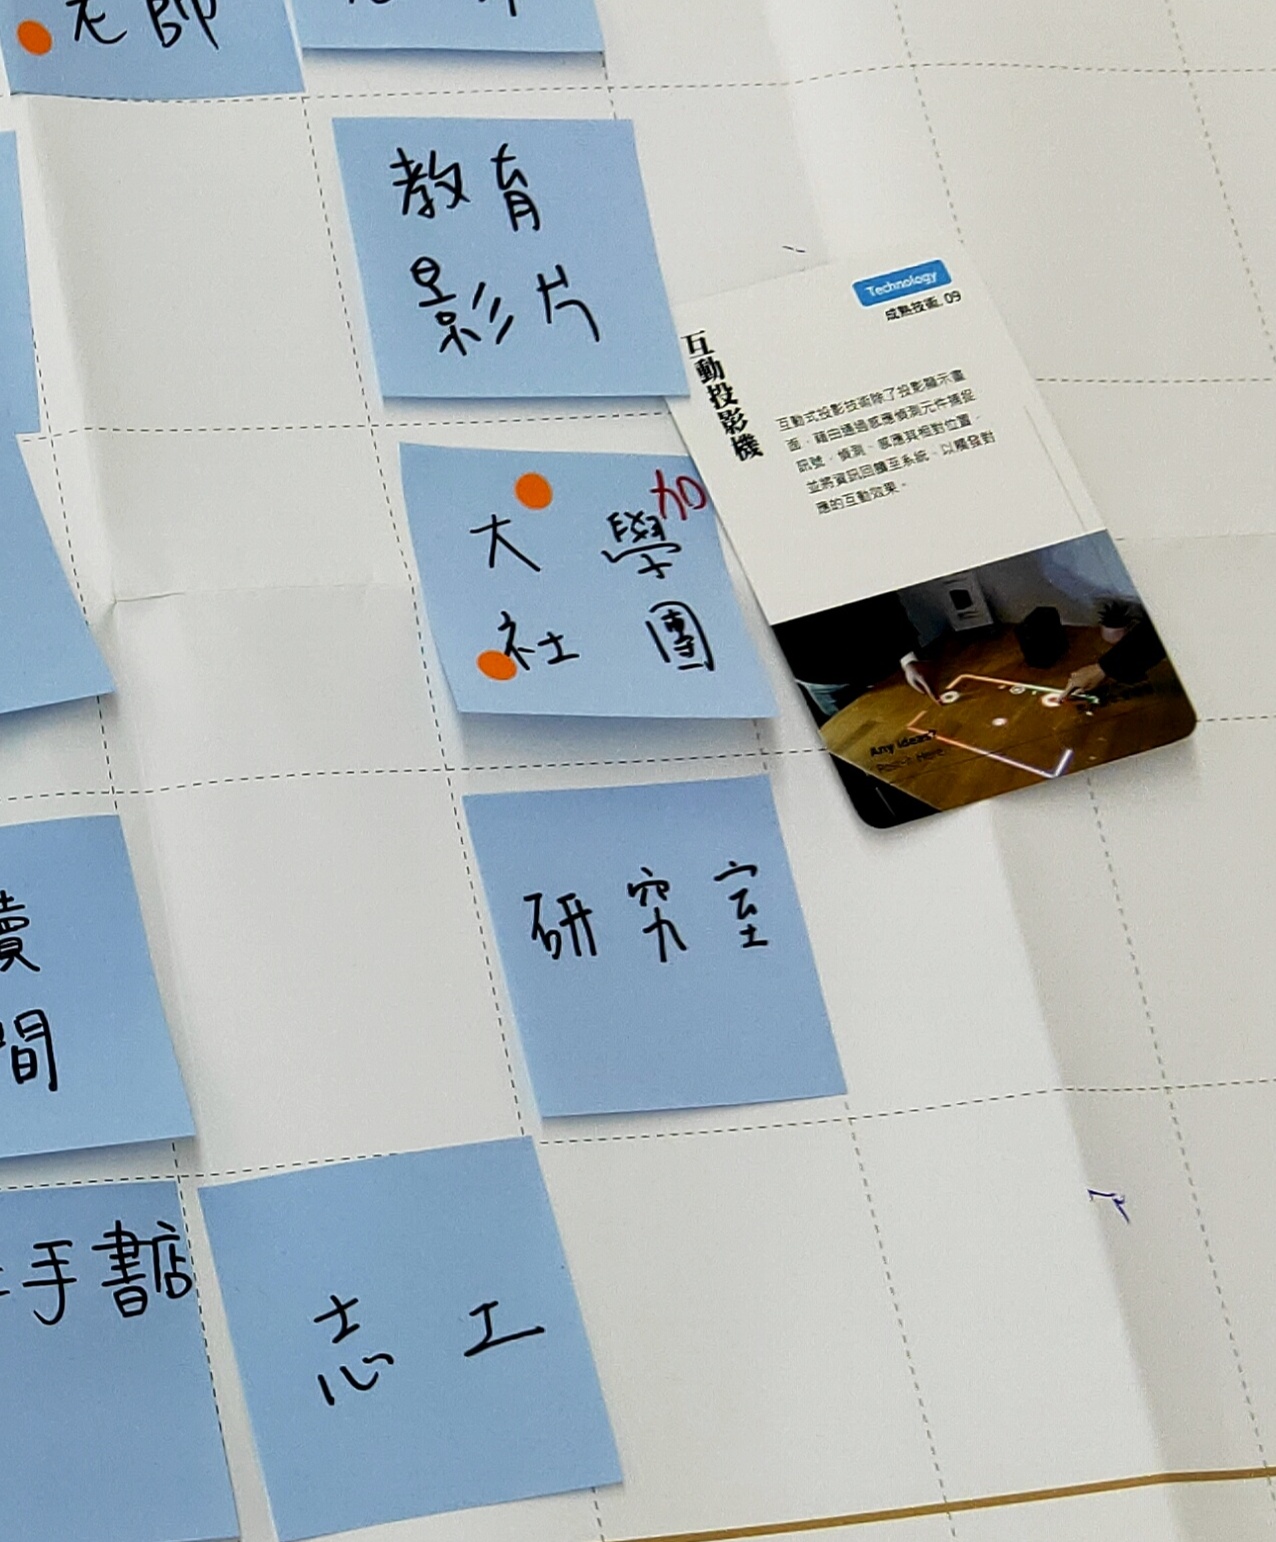 老師
教育
影片
Technology
成熟技術. 09
互動投影機
互動式投影技術除了投影顯示畫
面，藉由通過感應偵測元件捕捉
訊號，偵測、感應其相對位置，
並將資訊回饋至系統，以觸發對
應的互動效果。
加
大學
社團
Any ideas?
Post-it Here.
研究室
讀
間
手書店
志工